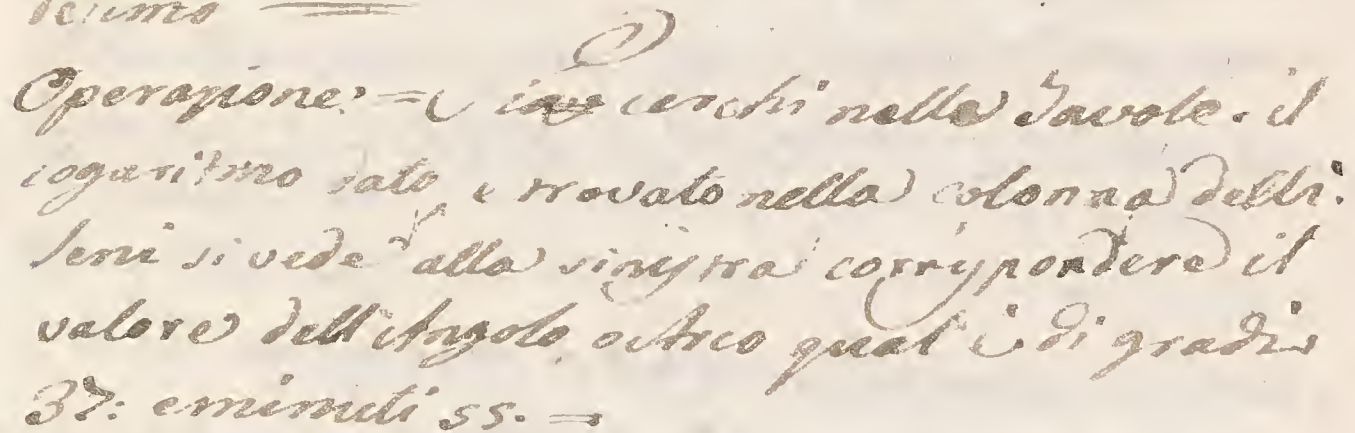 Operazione = si cerchi nella Tavole. il
logaritmo dato e trovato nella colonna delli
seni si vede alla sinistra corrispondere il
valore dell'Angolo, o Arco qual'è di gradi
37: e minuti 55. =